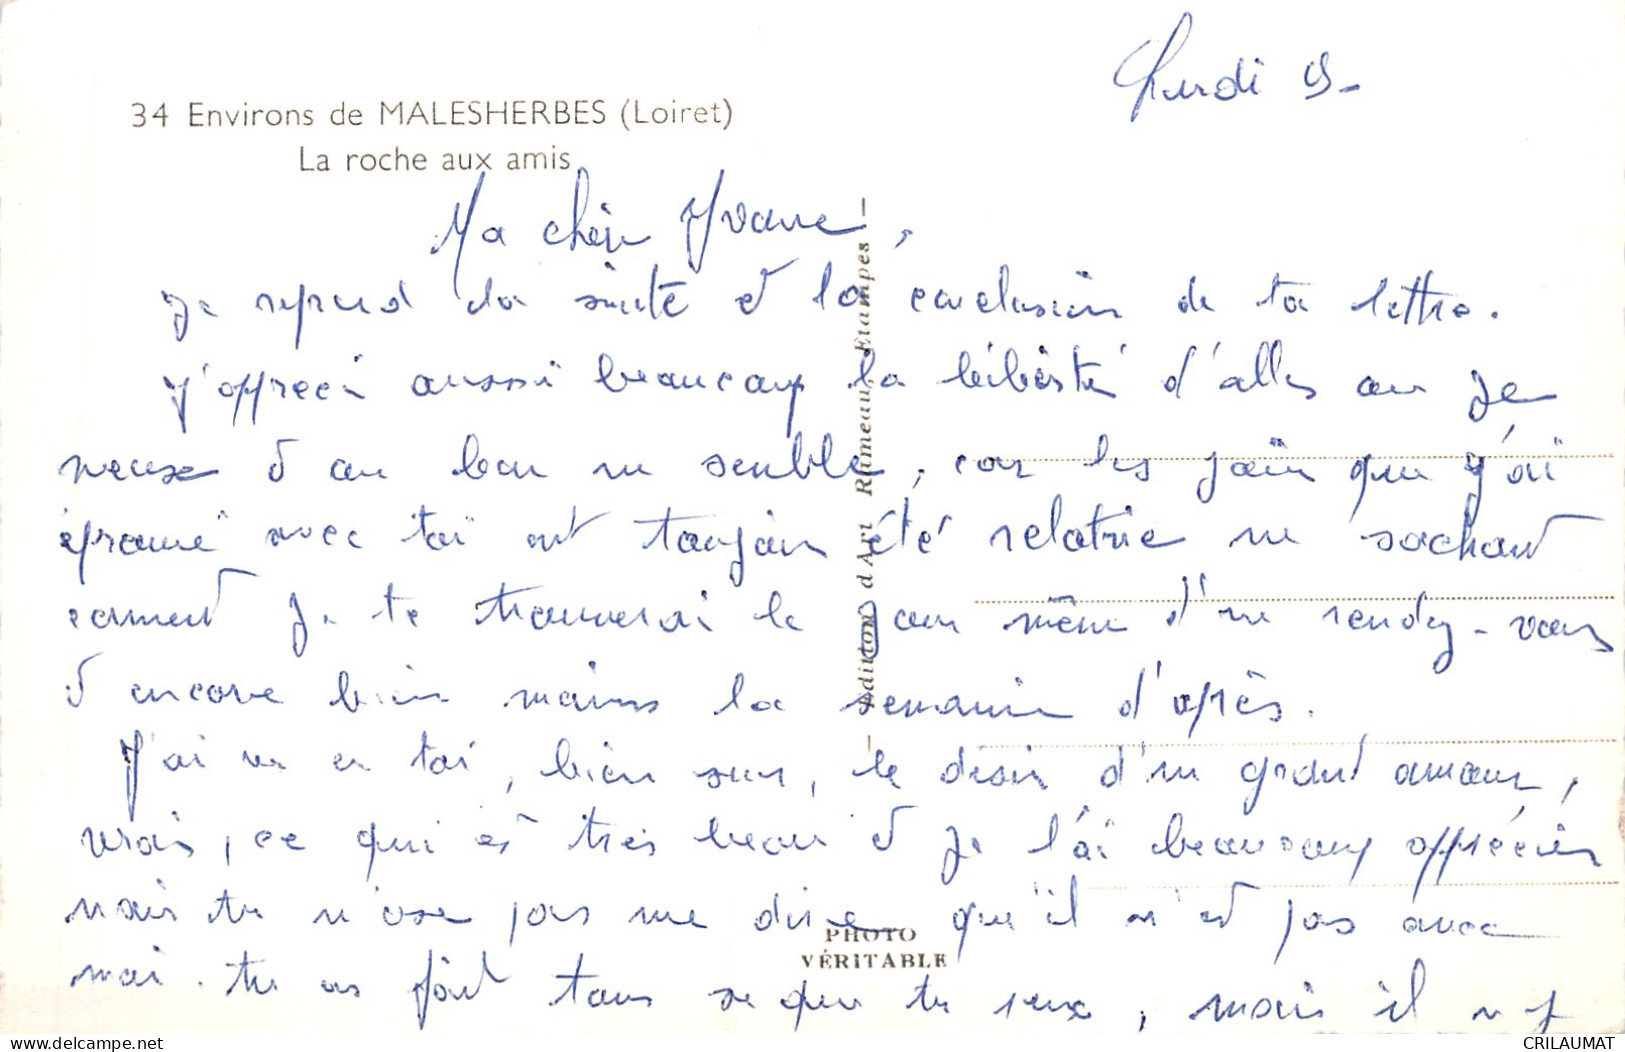 Lundi 9-
34 Environs de MALESHERBES (Loiret)
La roche aux amis
Ma chère Yvonne,
Je reprend la suite et la conclusion de ta lettre.
J'apprécie aussi beaucoup la liberté d'aller ou je
veux et ou bon me semble, car les joies que j'ai
éprouvé avec toi ont toujours été relative ne sachant
comment je te trouverai le jour même d'un rendez-vous
et encore bien moins la semaine d'après.
J'ai vu en toi, bien sur, le désir d'un grand amour,
vrais, ce qui est très beau et je l'ai beaucoup apprécier
mais tu n'ose pas me dire qu'il n'est pas avec
moi. tu as fait tous se que tu veux, mais il n'y
Edition d'Art Rameau, Etampes
PHOTO
VÉRITABLE
delcampe.net
CRILAUMAT